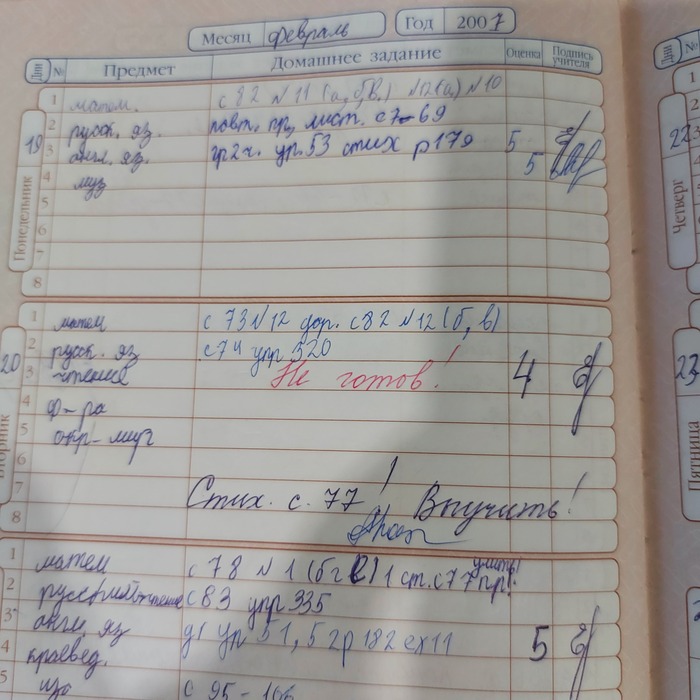 Месяц февраль Год 2007
Дни № Предмет Домашнее задание Оценка Подпись учителя
19 Понедельник
1 матем. с 82 №11 (а,б,в) №12(а) №10
2 русск. яз. повт. пр, лист. с7-69
3 англ. яз. гр2ч. упр.53 стих р179 5
4 муз 5
5
6
7
8
20 Вторник
1 матем с 73 №12 дор. с82 №12 (б, в)
2 русск. яз с74 упр 320
3 чтение Не готов! 4
4 ф-ра
5 окр-мир
6
7 Стих. с. 77! Выучить!
8
1 матем с 78 №1 (бг) 1 ст. с77 учить!
2 русский чтение с83 упр 335
3 англ. яз упр 51, 5 гр 182 ex11 5
4 краевед.
5 изо с 95-106
22 Четверг
23 Пятница